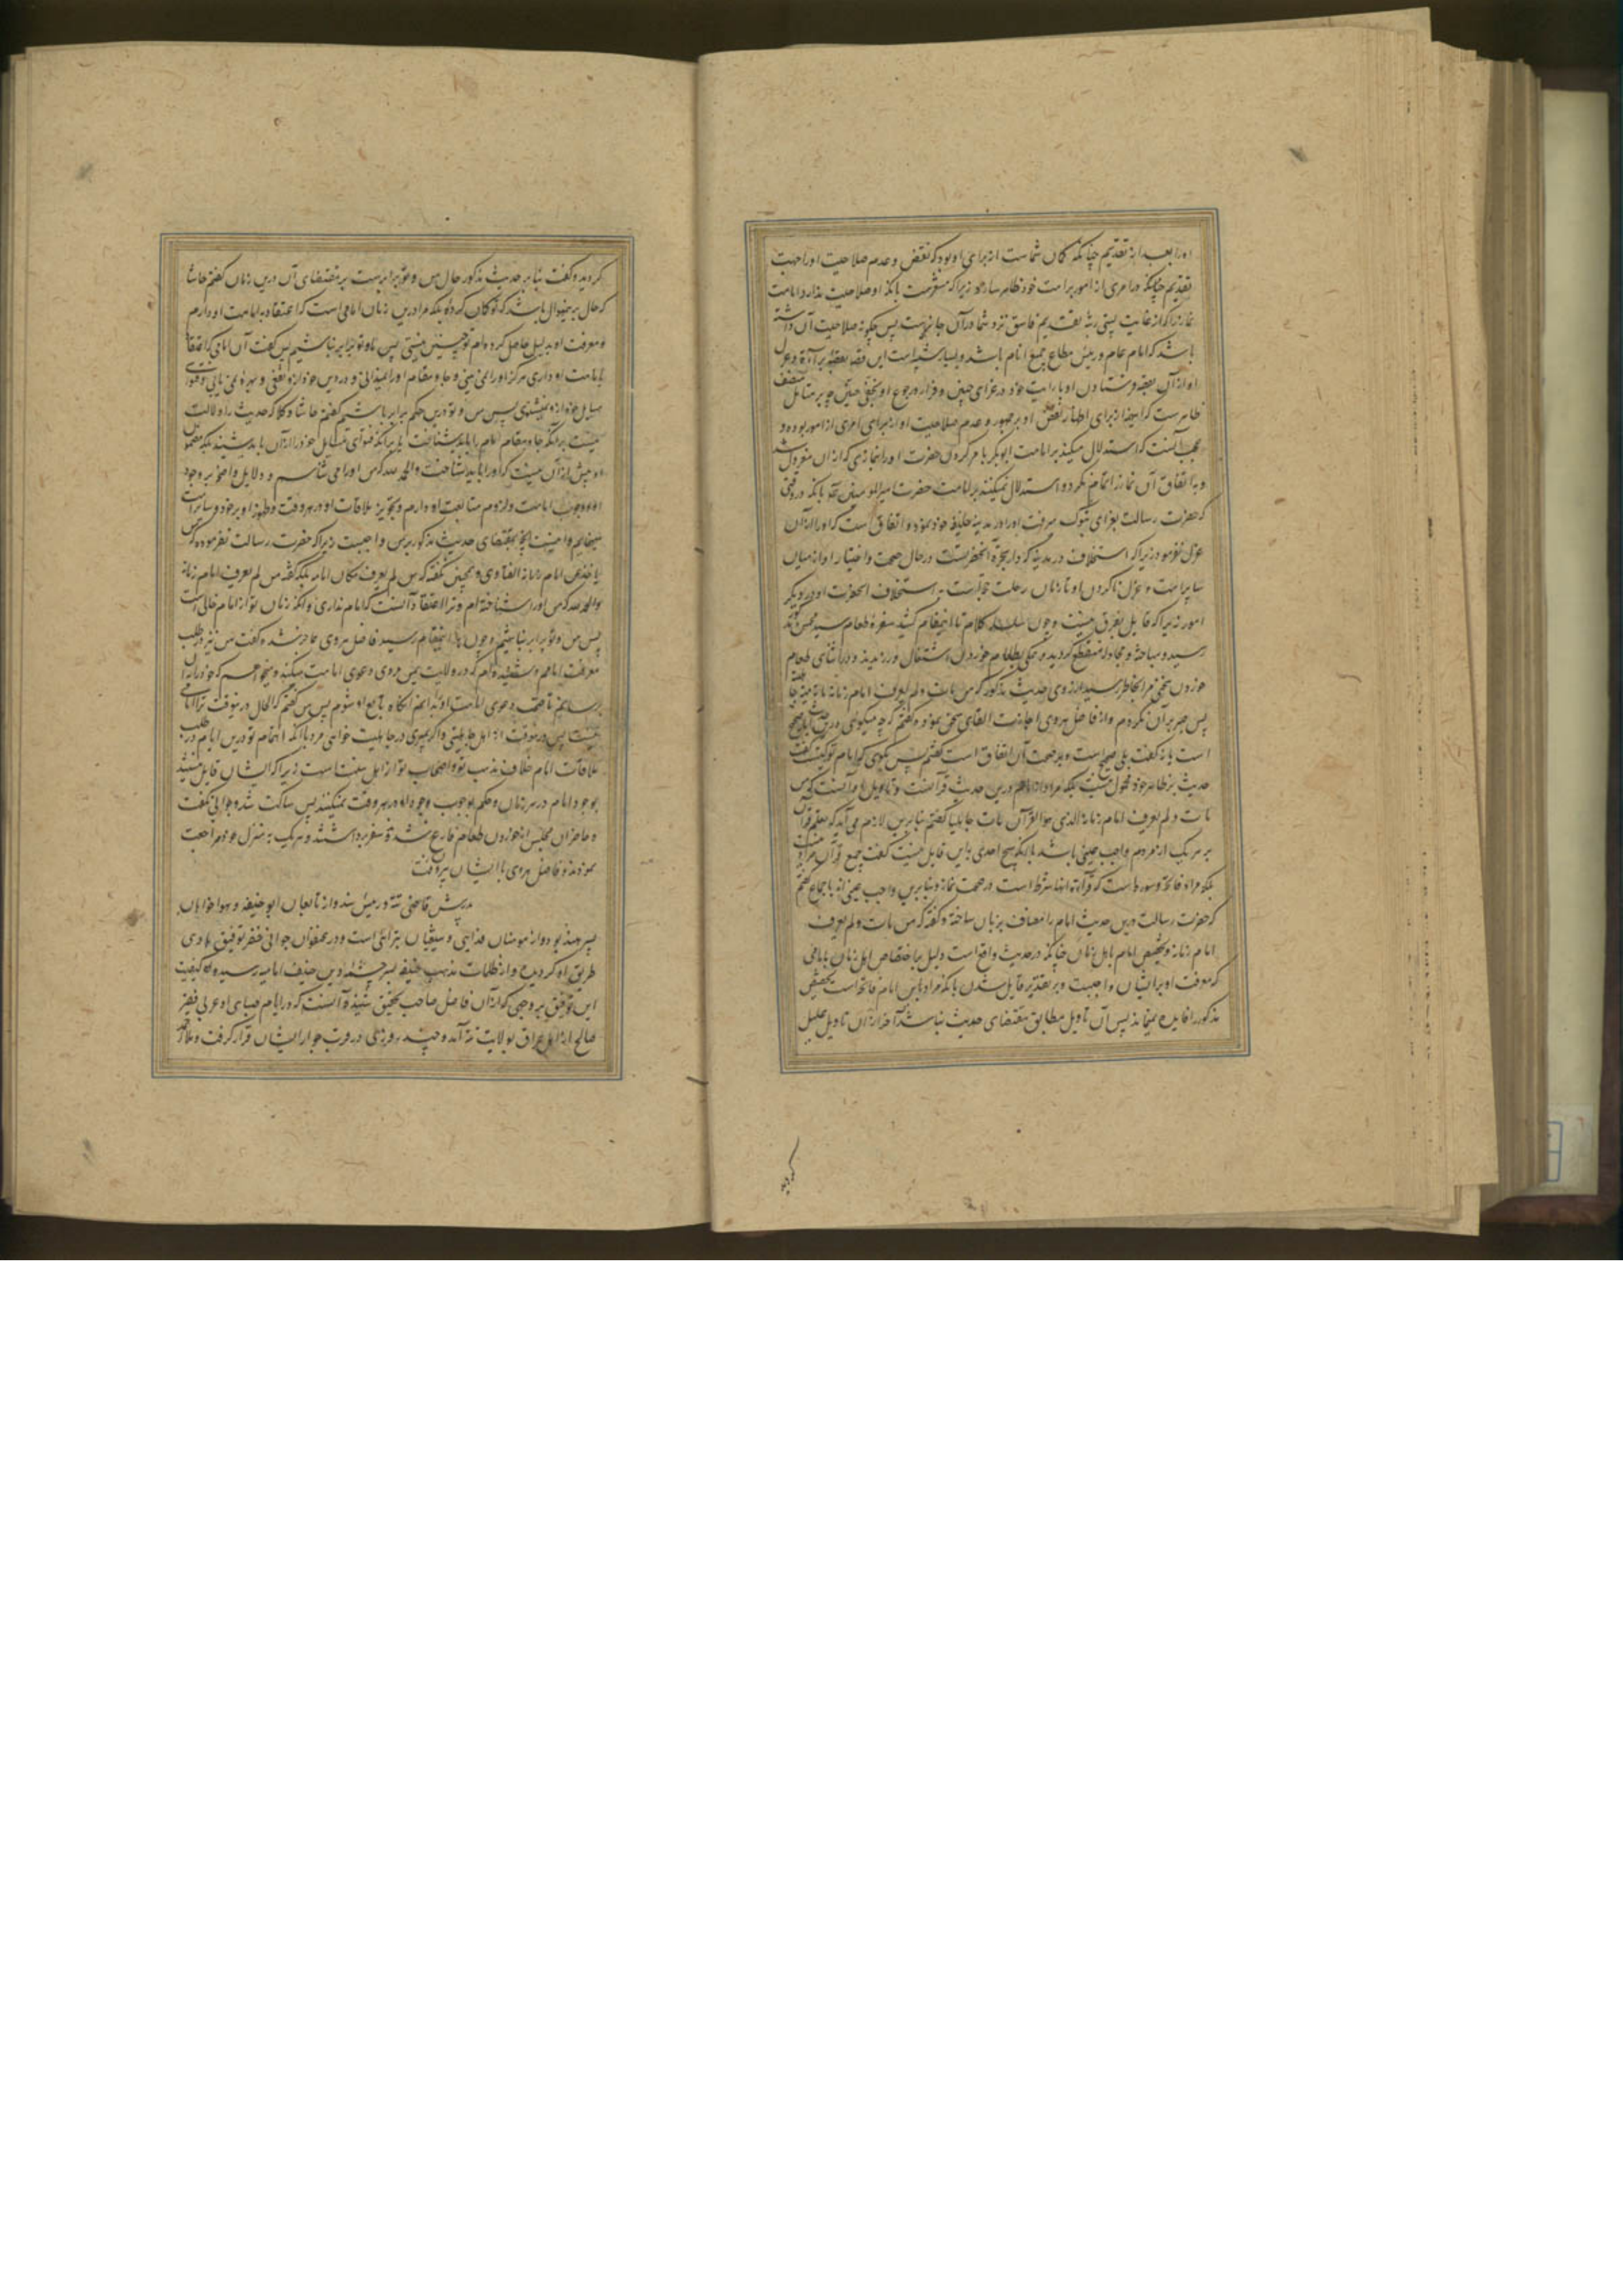 اورا بعد از تقدیم چنانکه گمان شماست از برای او بود که نقض و عدم صلاحیت او را جهت
تقدیم چنانکه در امری از امور بر امت خود ظاهر سازد زیرا که مقررست بانکه او صلاحیت ندارد امامت
نماز را که از غایت پستی رتبه تقدیم فاسق نزد شما در آن جایزست پس چگونه صلاحیت آن داشته
باشد که امام عام و رئیس مطاع جمیع انام باشد و بسیار شبیه است این قصه بقصه برآءة و عزل
او از آن بقصه فرستادن او با رایت خود در غزای خیبر و فرار و رجوع او بخفی حنین چه بر متأمل منصف
ظاهرست که اینها از برای اظهار نقض او بر جمهور و عدم صلاحیت او از برای امری از امور بوده و
عجب آنست که استدلال میکنند بر امامت ابوبکر بامر کردن حضرت او را بنمازی که از آن معزول شد
و به اتفاق آن نماز را تمام نکرد و استدلال نمیکنند بر امامت حضرت امیر المومنین علی بانکه در وقتی
که حضرت رسالت بغزای تبوک میرفت او را در مدینه خلیفه خود نمود و اتفاق است که او را از آن
عزل نفرمود زیرا که استخلاف در مدینه که دار هجرة آنحضرتست در حال صحت و اختیار او از میان
سایر امت و عزل ناکردن او تا زمان رحلت حجتست بر استخلاف آنحضرت او در دیگر
امور زیرا که قایل بفرق نیست و چون سلسله کلام ما باینمقام کشید سفره طعام سید محسن
رسید و مباحثه و مجادله منقطع گردید و همگی بطعام خوردن اشتغال ورزیدند و در اثنای طعام
خوردن سخنی مرا بخاطر رسید از روی حدیث مذکور که من مات و لم یعرف امام زمانه مات میتة جاهلیة
پس صبر بر آن نکردم و از فاضل هروی اجازت القای سخن نموده گفتم که چه میگوئی درین حدیث آیا صحیح
است یا نه گفت بلی صحیح است و بر صحت آن اتفاق است گفتم پس بگوی که امام تو کیست گفت
حدیث بر ظاهر خود محمول نیست بلکه مراد از امام درین حدیث قرآنست و تأویل او آنست که من
مات و لم یعرف امام زمانه الذی هو القرآن مات جاهلیا گفتم بنابرین لازم می آید که تعلم قرآن
بر هر یک از مردم واجب عینی باشد با آنکه هیچ احدی باین قایل نیست گفت جمیع قرآن مراد نیست
بلکه مراد فاتحه و سوره است که قرآءة آنها شرط است در صحت نماز و بنابرین واجب عینی اند باجماع گفتم
که حضرت رسالت درین حدیث امام را مضاف بزمان ساخته و گفته که من مات و لم یعرف
امام زمانه و تخصیص امام باهل زمان چنانکه در حدیث واقع است دلیل بر اختصاص اهل زمان بامامی
که معرفت او بر ایشان واجبست و بر تقدیر قایل شدن بانکه مراد باین امام فاتحه است تخصیص
مذکور را فایده نمیماند پس آن تأویل مطابق مقتضای حدیث نباشد آخر از آن تأویل علیل
گردید
گردید و گفت بنابر حدیث مذکور حال من و تو برابرست بر مقتضای آن درین زمان گفتم حاشا
که حال برینمنوال باشد که تو گمان کرده بلکه مرا درین زمان امامی است که اعتقاد به امامت او دارم
و معرفت او بدلیل حاصل کرده ام تو چنین نیستی پس ما و تو برابر نباشیم پس گفت آن امامی که اعتقاد
بامامت او داری هرگز او را نمی بینی و جا و مقام او را نمیدانی و در دین خود از او نفعی و بهره نمی یابی و فتوای
مسایل خود از او نمیشنوی پس من و تو درین حکم برابر باشیم گفتم حاشا و کلا که حدیث را دلالت
نیست بر آنکه جا و مقام امام را باید شناخت یا بر آنکه فتوای مسایل خود را از آن باید شنید بلکه مضمون
او بیش از آن نیست که او را باید شناخت والحمد لله که من او را می شناسم و دلایل واضحه بر وجود
او و وجوب امامت و لزوم متابعت او دارم و تجویز ملاقات او در هر وقت و ظهور او بر خود و سایر امت
مینمایم و اینست آنچه بمقتضای حدیث مذکور بر من واجبست زیرا که حضرت رسالت نفرموده که من لم
یاخذ من امام زمانه الفتاوی و همچنین نگفته که من لم یعرف مکان امامه بلکه گفته من لم یعرف امام زمانه
والحمد لله که من او را شناخته ام و ترا اعتقاد آنست که امام نداری و آنکه زمان تو از امام خالی است
پس من و تو برابر نباشیم و چون باینمقام رسید فاضل هروی عاجز شد و گفت من نیز در طلب
معرفت امامم و شنیده ام که در ولایت یمن مردی دعوی امامت میکند و میخواهم که خود را با او
رسانم تا صحت دعوی امامت او بدانم آنگاه تابع او شوم پس من گفتم که الحال درینوقت ترا امامی
نیست پس درینوقت از اهل جاهلیتی و اگر بمیری در جاهلیت خواهی مرد با آنکه اهتمام تو درین ایام در طلب
ملاقات امام خلاف مذهب تو و اصحاب تو از اهل سنت است زیرا که ایشان قایل نیستند
بوجود امام در هر زمان و حکم بوجوب وجود او در هر وقت نمیکنند پس ساکت شد و جوابی نگفت
و حاضران مجلس از خوردن طعام فارغ شده سفره برداشتند و هر یک به منزل خود مراجعت
نمودند و فاضل هروی با ایشان بیرون رفت
پدرش قاضی تته و رئیس سند و از تابعان ابو حنیفه و هواخواهان
پسر هند بود و او از مومنان فدایی و شیعیان تبرایی است و در عنفوان جوانی خضر توفیق هادی
طریق او گردیده و از ظلمات مذهب حنیفه بسرچشمه دین حنیف امامیه رسیده و کیفیت
این توفیق بر وجهی که از آن فاضل صاحب تحقیق شنیده آنست که در ایام صبای او عربی فقیر
صالح از اهل عراق بولایت تته آمد و چند روزی در قرب جوار ایشان قرار گرفت و ملا احمد